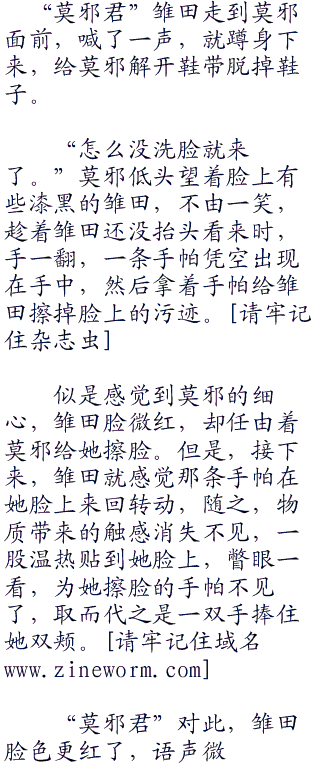 “莫邪君”雏田走到莫邪
面前，喊了一声，就蹲身下
来，给莫邪解开鞋带脱掉鞋
子。
“怎么没洗脸就来
了。”莫邪低头望着脸上有
些漆黑的雏田，不由一笑，
趁着雏田还没抬头看来时，
手一翻，一条手帕凭空出现
在手中，然后拿着手帕给雏
田擦掉脸上的污迹。[请牢记
住杂志虫]
似是感觉到莫邪的细
心，雏田脸微红，却任由着
莫邪给她擦脸。但是，接下
来，雏田就感觉那条手帕在
她脸上来回转动，随之，物
质带来的触感消失不见，一
股温热贴到她脸上，瞥眼一
看，为她擦脸的手帕不见
了，取而代之是一双手捧住
她双颊。[请牢记住域名
www.zineworm.com]
“莫邪君”对此，雏田
脸色更红了，语声微